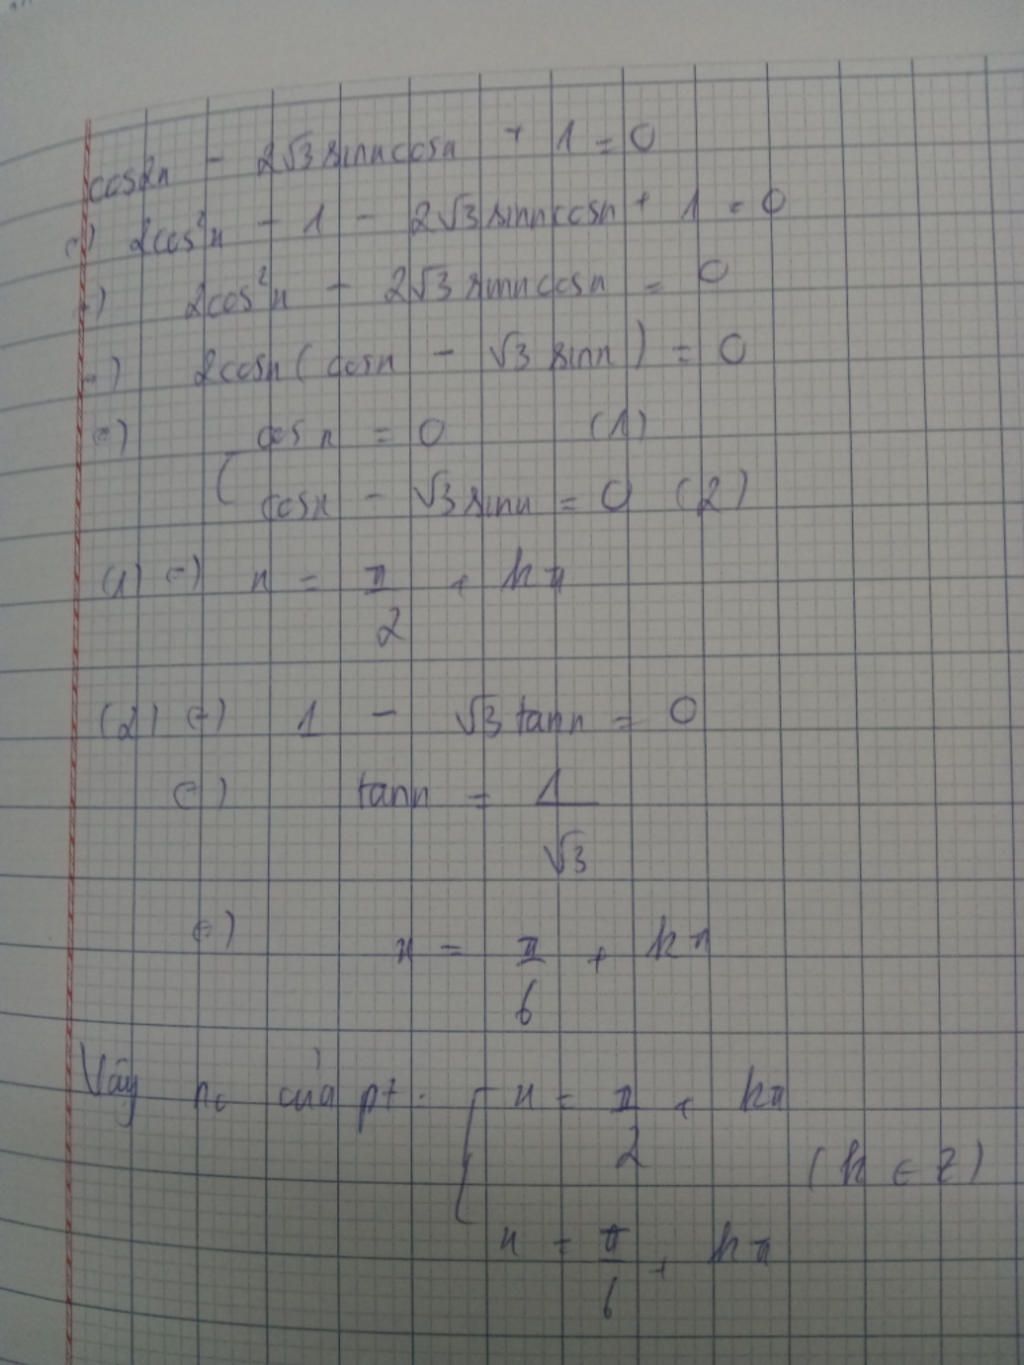 cos2x - 2√3 sinxcosx + 1 = 0
(=) 2cos²x - 1 - 2√3 sinxcosx + 1 = 0
(=) 2cos²x - 2√3 sinxcosx = 0
(=) 2cosx (cosx - √3 sinx) = 0
(=) [ cosx = 0 (1)
cosx - √3 sinx = 0 (2)
(1) (=) x = π/2 + kπ
(2) (=) 1 - √3 tanx = 0
(=) tanx = 1/√3
(=) x = π/6 + kπ
Vậy no của pt: [ x = π/2 + kπ
(k ∈ Z)
x = π/6 + kπ